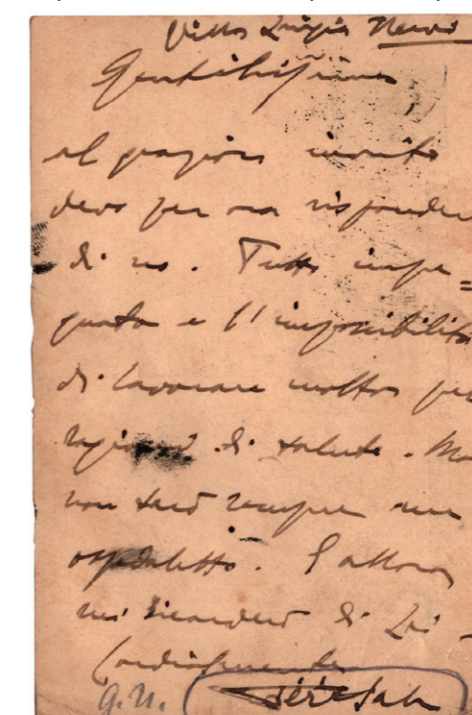 Villa Luigia Nervi
Gentilissimo,
al grazioso invito
devo per ora risponder
di no. Tutto impe=
gnato e l'impossibilità
di lavorare molto per
ragioni di salute. Ma
non sarò sempre un
ospedaletto. E allora
mi ricorderò di Lei -
Cordialmente
Térésah
G. U.